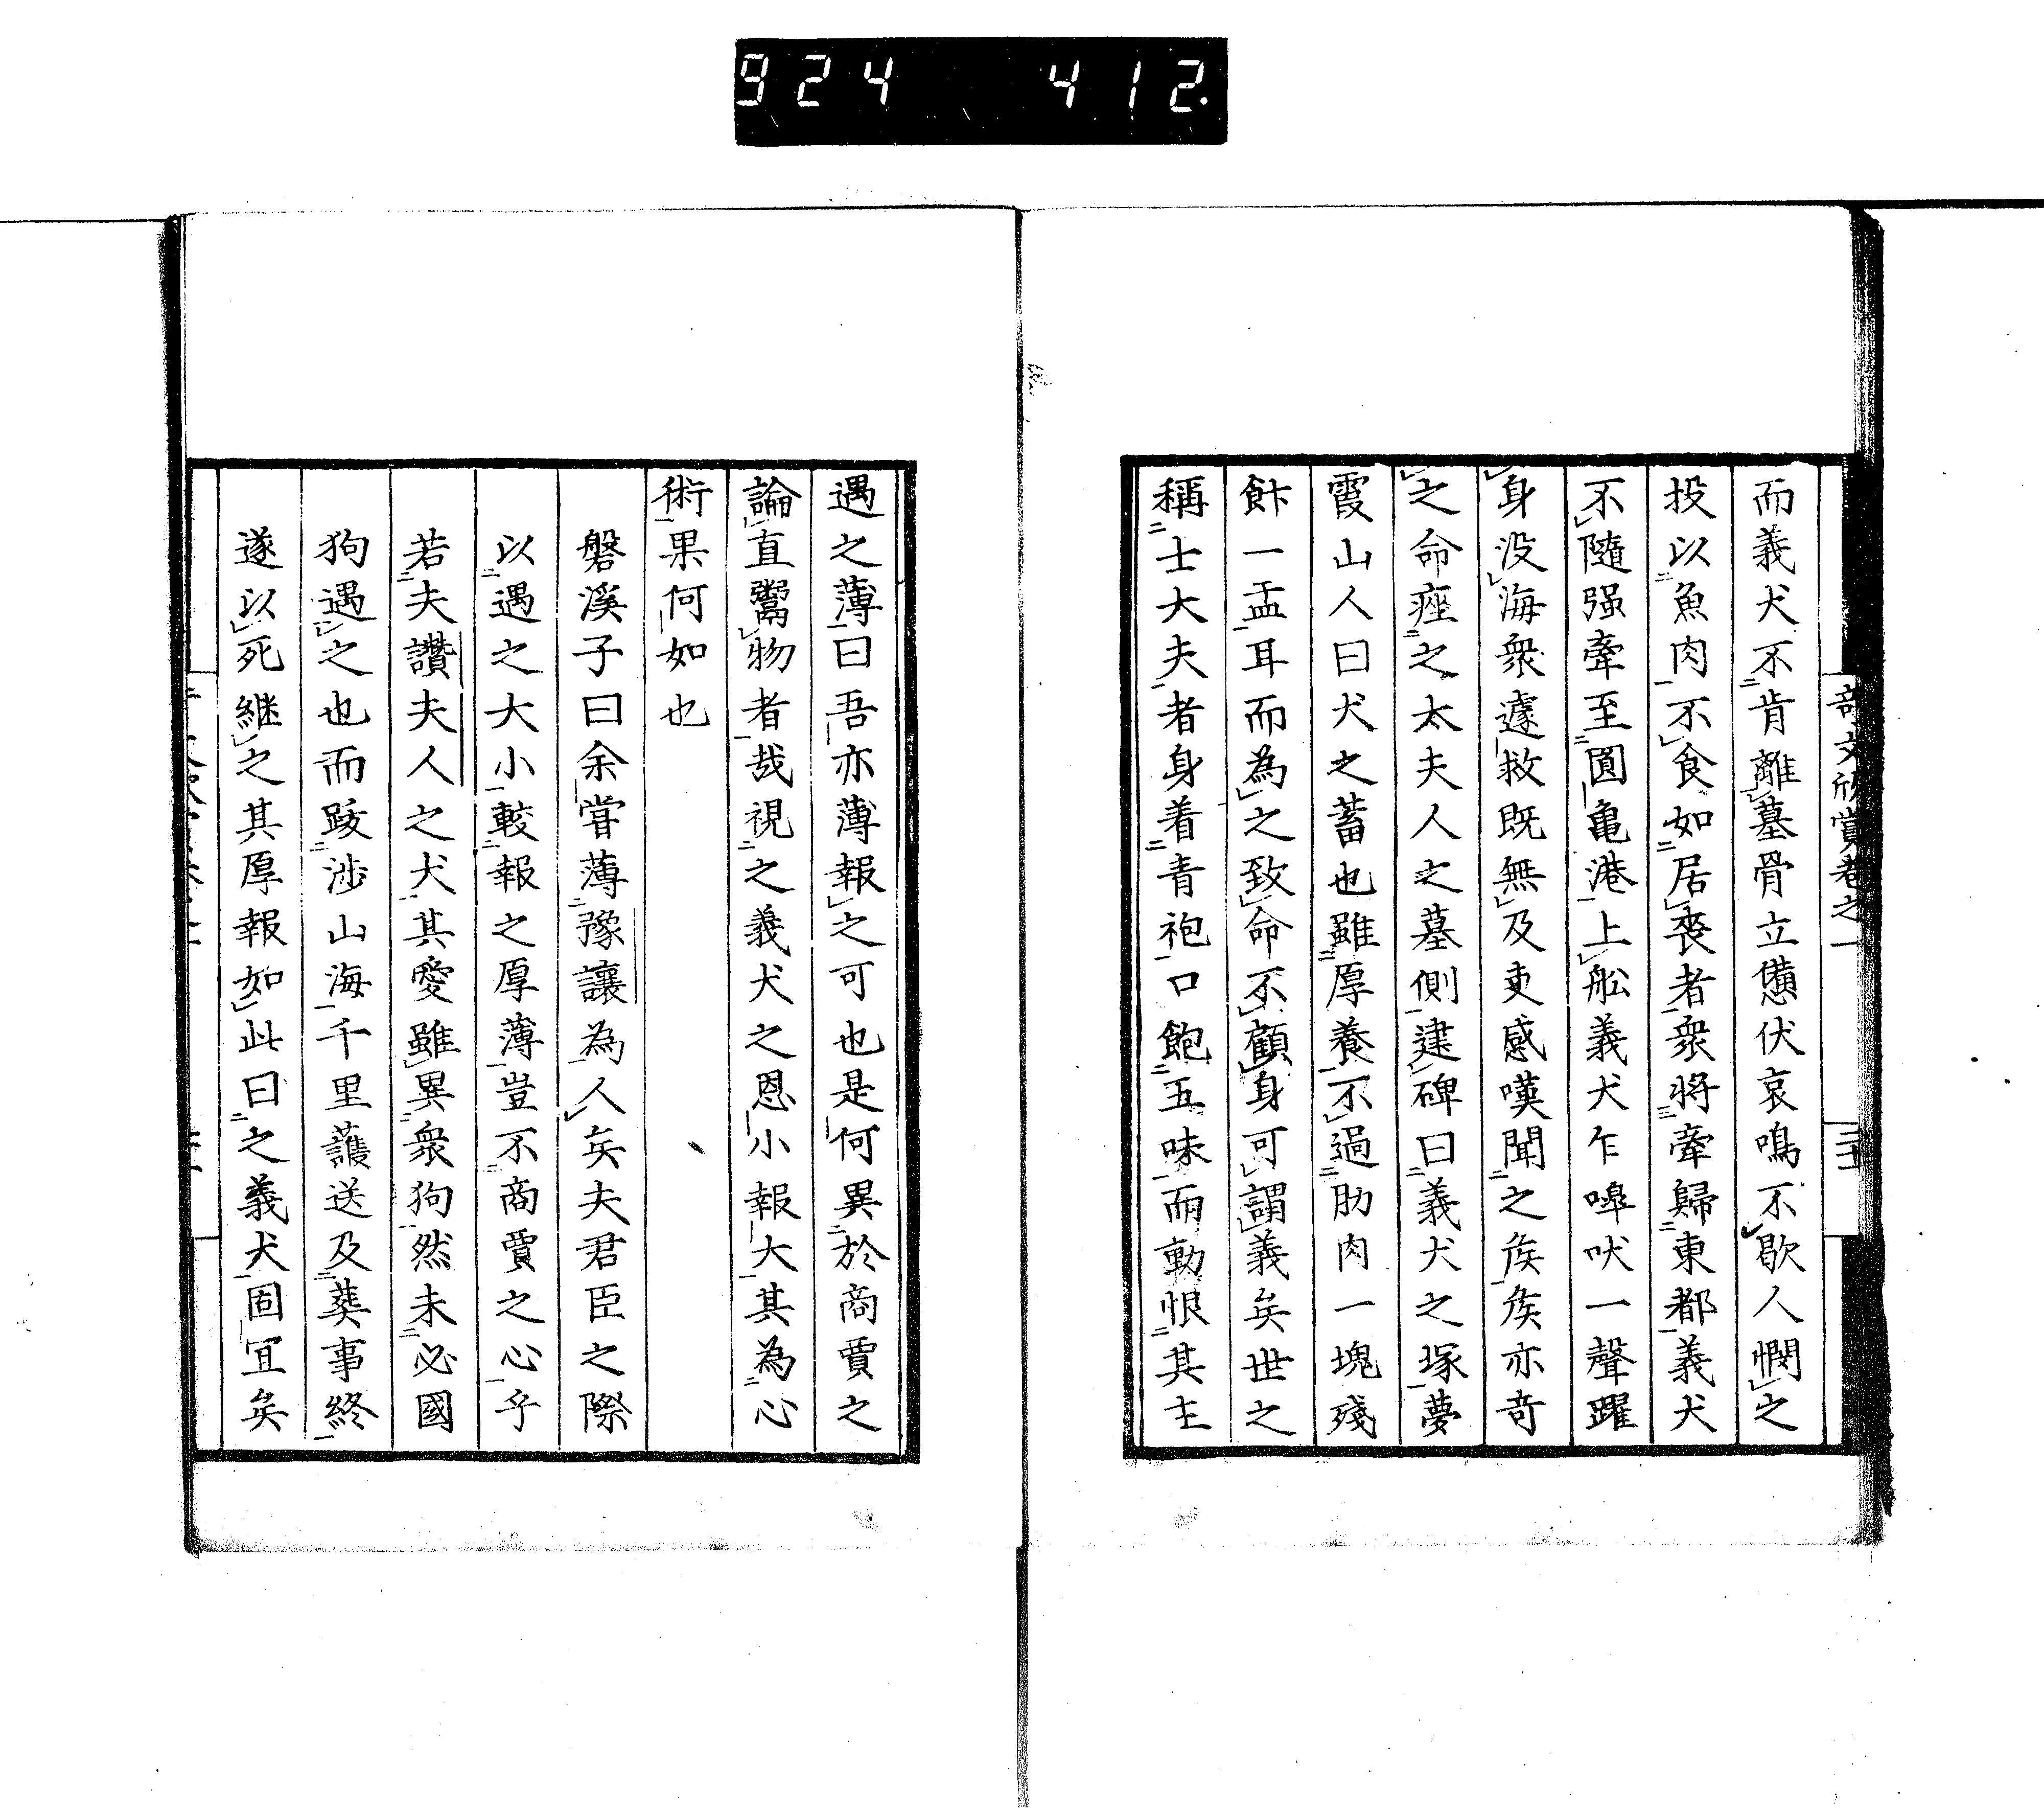 924 412.
奇文欣賞卷之一
而義犬不肯離墓骨立憊伏哀鳴不歇人憫之
投以魚肉不食如居喪者衆将牽歸東都義犬
不隨强牽至圓亀港上舩義犬乍嘷吠一聲躍
身没海衆遽救既無及吏感嘆聞之矦矦亦奇
之命瘞之太夫人之墓側建碑曰義犬之塚夢
霞山人曰犬之蓄也雖厚養不過肋肉一塊殘
餘一盂耳而為之致命不顧身可謂義矣世之
稱士大夫者身着青袍口飽五味而動恨其主
遇之薄曰吾亦薄報之可也是何異於商賈之
論直鬻物者哉視之義犬之恩小報大其為心
術果何如也
磐溪子曰余嘗薄豫讓為人矣夫君臣之際
以遇之大小較報之厚薄豈不商賈之心乎
若夫讚夫人之犬其愛雖異衆狗然未必國
狗遇之也而跋渉山海千里護送及葬事終
遂以死継之其厚報如此曰之義犬固宜矣